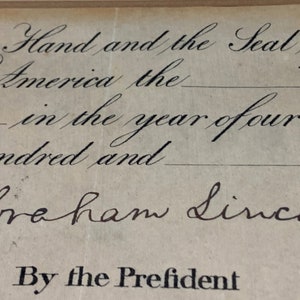 Hand and the Seal
America the
in the year of our
ndred and
raham Linc
By the Preſident